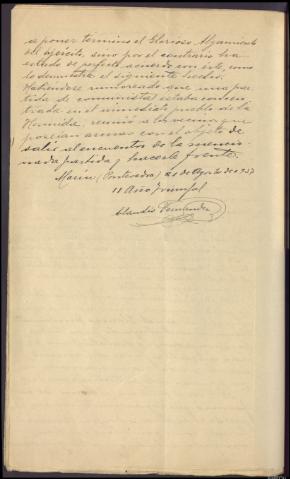 se poner termino el Glorioso Alzamiento
del ejército, sino por el contrario ha
estado de perfecto acuerdo con este, como
lo demuestra el siguiente hecho:
Habiendose rumoreado que una par-
tida de comunistas estaba concen-
trada en el inmediato pueblo de la
reunió a los vecinos que
poseian armas con el objeto de
salir al encuentro de la mencio-
nada partida y hacerle frente.
Marin (Pontevedra) 21 de Agosto de 1937
II Año Triunfal
Claudio Fernandez